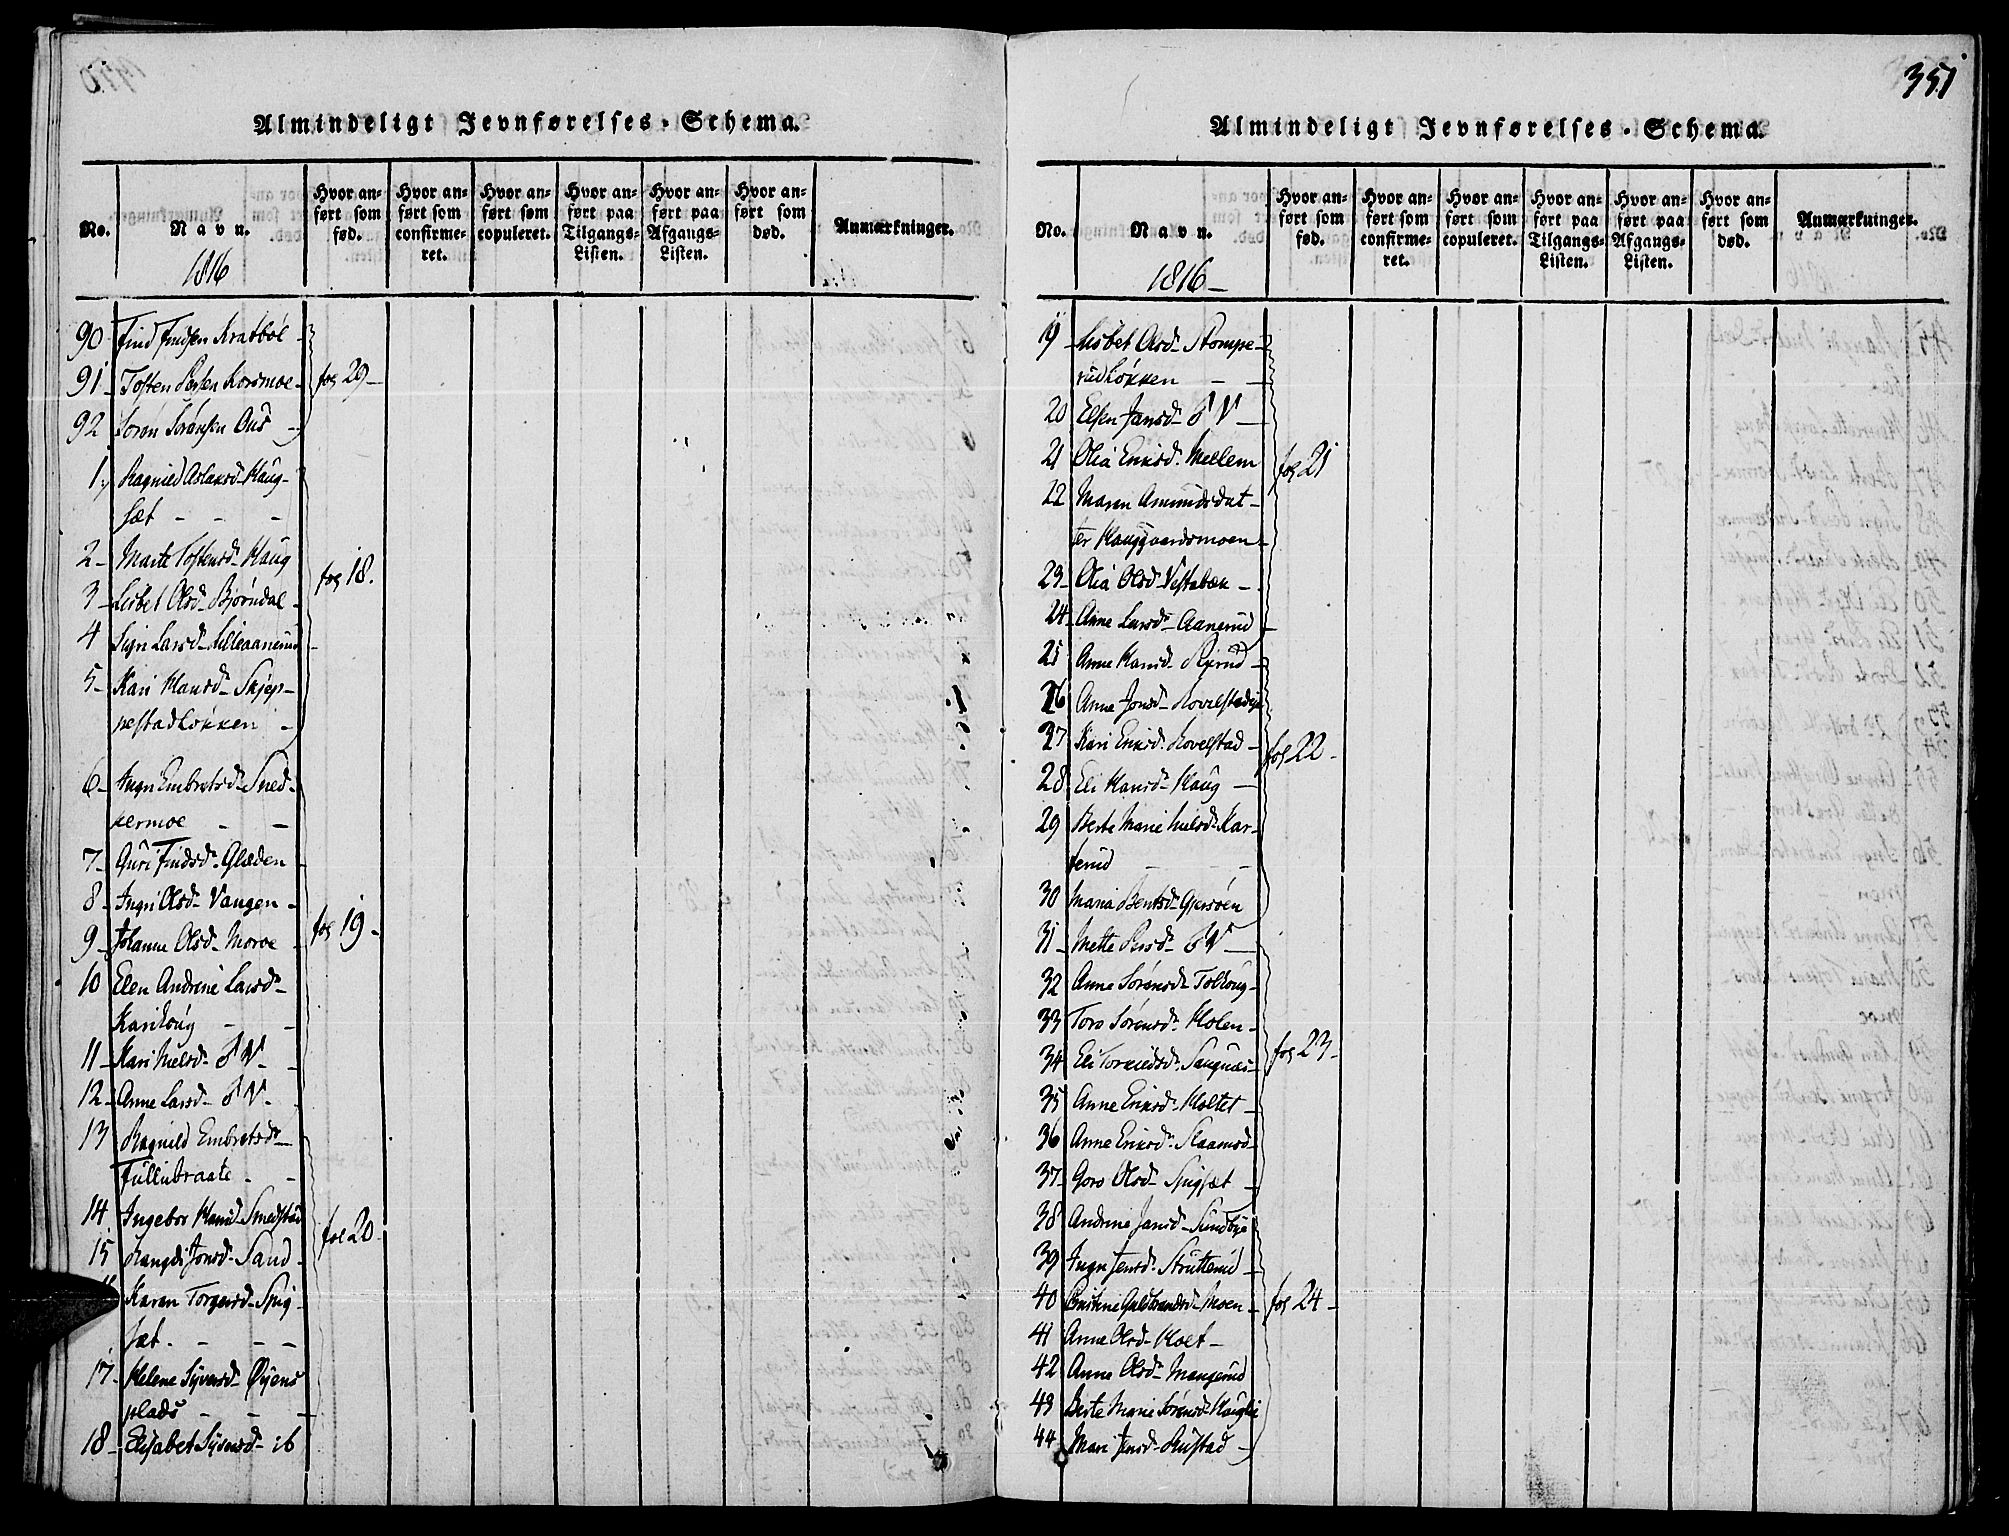 Almindeligt Jevnførelses-Schema.
No.
Navn.
1816
Hvor an=
ført som
fød.
Hvor an=
ført som
confirme=
ret.
Hvor an=
ført som
copuleret.
Hvor an=
ført paa
Tilgangs=
Listen.
Hvor an=
ført paa
Afgangs=
Listen.
Hvor an=
ført som
død.
Anmærkninger.
90 Find Findsen Kratbøl
91 Tosten Persen Korsmoe
92 Søren Sørensen Aus
fol 29
1 Ragnild Aslaksd Haug-
sæt
2 Marte Tostensd Haug
3 Lisbet Olsd Bjørndal
4 Siri Larsd Lilleaanerud
5 Kari Hansd Skjep-
pestadløkken
fol 18.
6 Ingri Embretsd Sned-
kermoe
7 Guri Findsd Gladen
8 Ingri Olsd Vangen
9 Johanne Olsd Moroe
10 Elen Andrine Larsd
Kariloug
11 Kari Nielsd
12 Anne Larsd
fol 19
13 Ragnild Embretsd
Fullubraate
14 Ingebor Hansd Smedstad
15 Rangdi Jonsd Sand
Karen Torgersd Spig-
sæt
17 Helene Syversd Øyens
plads
18 Elisabet Syversd ib
fol 20
351
Almindeligt Jevnførelses-Schema.
No.
Navn.
1816
Hvor an=
ført som
fød.
Hvor an=
ført som
confirme=
ret.
Hvor an=
ført som
copuleret.
Hvor an=
ført paa
Tilgangs=
Listen.
Hvor an=
ført paa
Afgangs=
Listen.
Hvor an=
ført som
død.
Anmærkninger.
19 Lisbet Olsd Stompe-
rudløkken
20 Elsen Jansd
21 Olia Eriksd Mellem
22 Maren Amundsdat-
ter Hauggaardsmoen
23 Olia Olsd Vestabæk
24 Anne Larsd Aanerud
fol 21
25 Anne Hansd
26 Anne Jonsd
27 Kari Eriksd Lovelstad
28 Eli Hansd Haug
29 Berte Marie Nielsd Kar-
terud
30 Maria Bentsd Gjersøen
fol 22
31 Mette
32 Anne Sørensd
33 Toro Sørensd Holen
34 Eli Torkildsd Sangnæs
35 Anne Eriksd Holtet
36 Anne Eriksd
37 Goro Olsd Spigsæt
fol 23
38 Andrine Jansd Sundbye
39 Ingri Jensd Strutterud
40 Cristine Guldbrandsd Moen
41 Anne Olsd Holt
42 Anne Olsd Mangerud
43 Berte Marie Sørensd Hauglie
44 Mari Jensd Rustad
fol 24